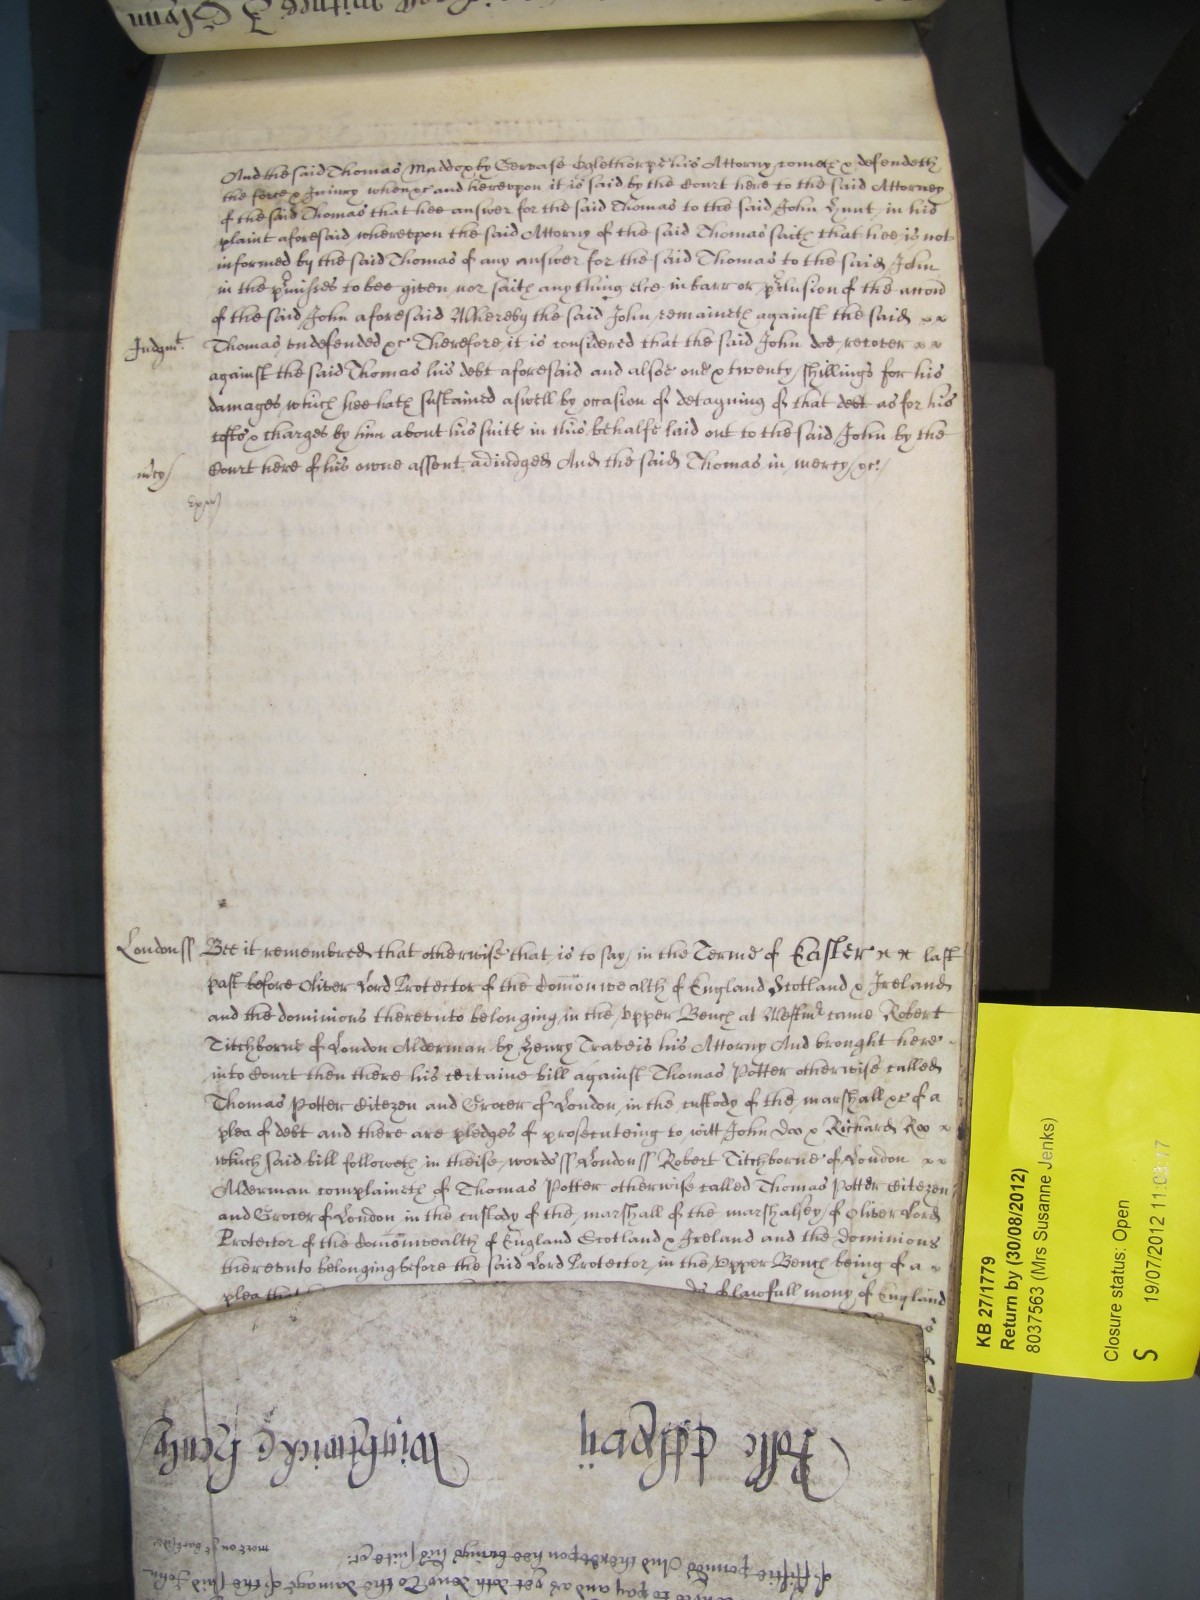 And the said Thomas Maddox by Gervase Oglethorpe his Attorny cometh & defendeth
the force & Iniury when &c and hereupon it is said by the Court here to the said Attorney
of the said Thomas that hee answer for the said Thomas to the said John Hunt in his
plaint aforesaid whereupon the said Attorny of the said Thomas saith that hee is not
informed by the said Thomas of any answer for the said Thomas to the said John
in the p̃misses to bee given nor saith any thing else in barr or p̃clusion of the accon
of the said John aforesaid Whereby the said John remaineth against the said x x
Judgmt. Thomas undefended &c Therefore it is considered that the said John doe recover x x
against the said Thomas his debt aforesaid and alsoe one & twenty shillings for his
damages which hee hath sustained aswell by occasion of detayning of that debt as for his
costs & charges by him about his suite in this behalfe laid out to the said John by the
mcy Court here of his owne assent adiudged And the said Thomas in mercy &c:
London ss Bee it remembred that otherwise that is to say in the Terme of Easter x x last
past before Oliver Lord Protector of the Comonwealth of England Scotland & Ireland
and the dominions thereunto belonging in the Upper Bench at Westmr came Robert
Titchborne of London Alderman by Henry Traveis his Attorny And brought here
into Court then there his certaine bill against Thomas Potter otherwise called
Thomas Potter Citezen and Grocer of London in the custody of the marshall &c of a
plea of debt and there are pledges of prosecuteing to witt John Doo & Richard Roo x
which said bill followeth in theise words ss London ss Robert Titchborne of London x x
Alderman complaineth of Thomas Potter otherwise called Thomas Potter Citezen
and Grocer of London in the custody of the marshall of the marshalsey of Oliver Lord
Protector of the Comonwealth of England Scotland & Ireland and the dominions
thereunto belonging before the said Lord Protector in the Upper Bench being of a x
plea that of lawfull mony of England
KB 27/1779
Return by (30/08/2012)
8037563 (Mrs Susanne Jenks)
Closure status: Open
S 19/07/2012 11:03:17
Rolle
Henley
to pay and as yet doth deny To the damage of the said John
of fiftie pounds And thereupon hee brings his suite &c:
witnes J Glynn